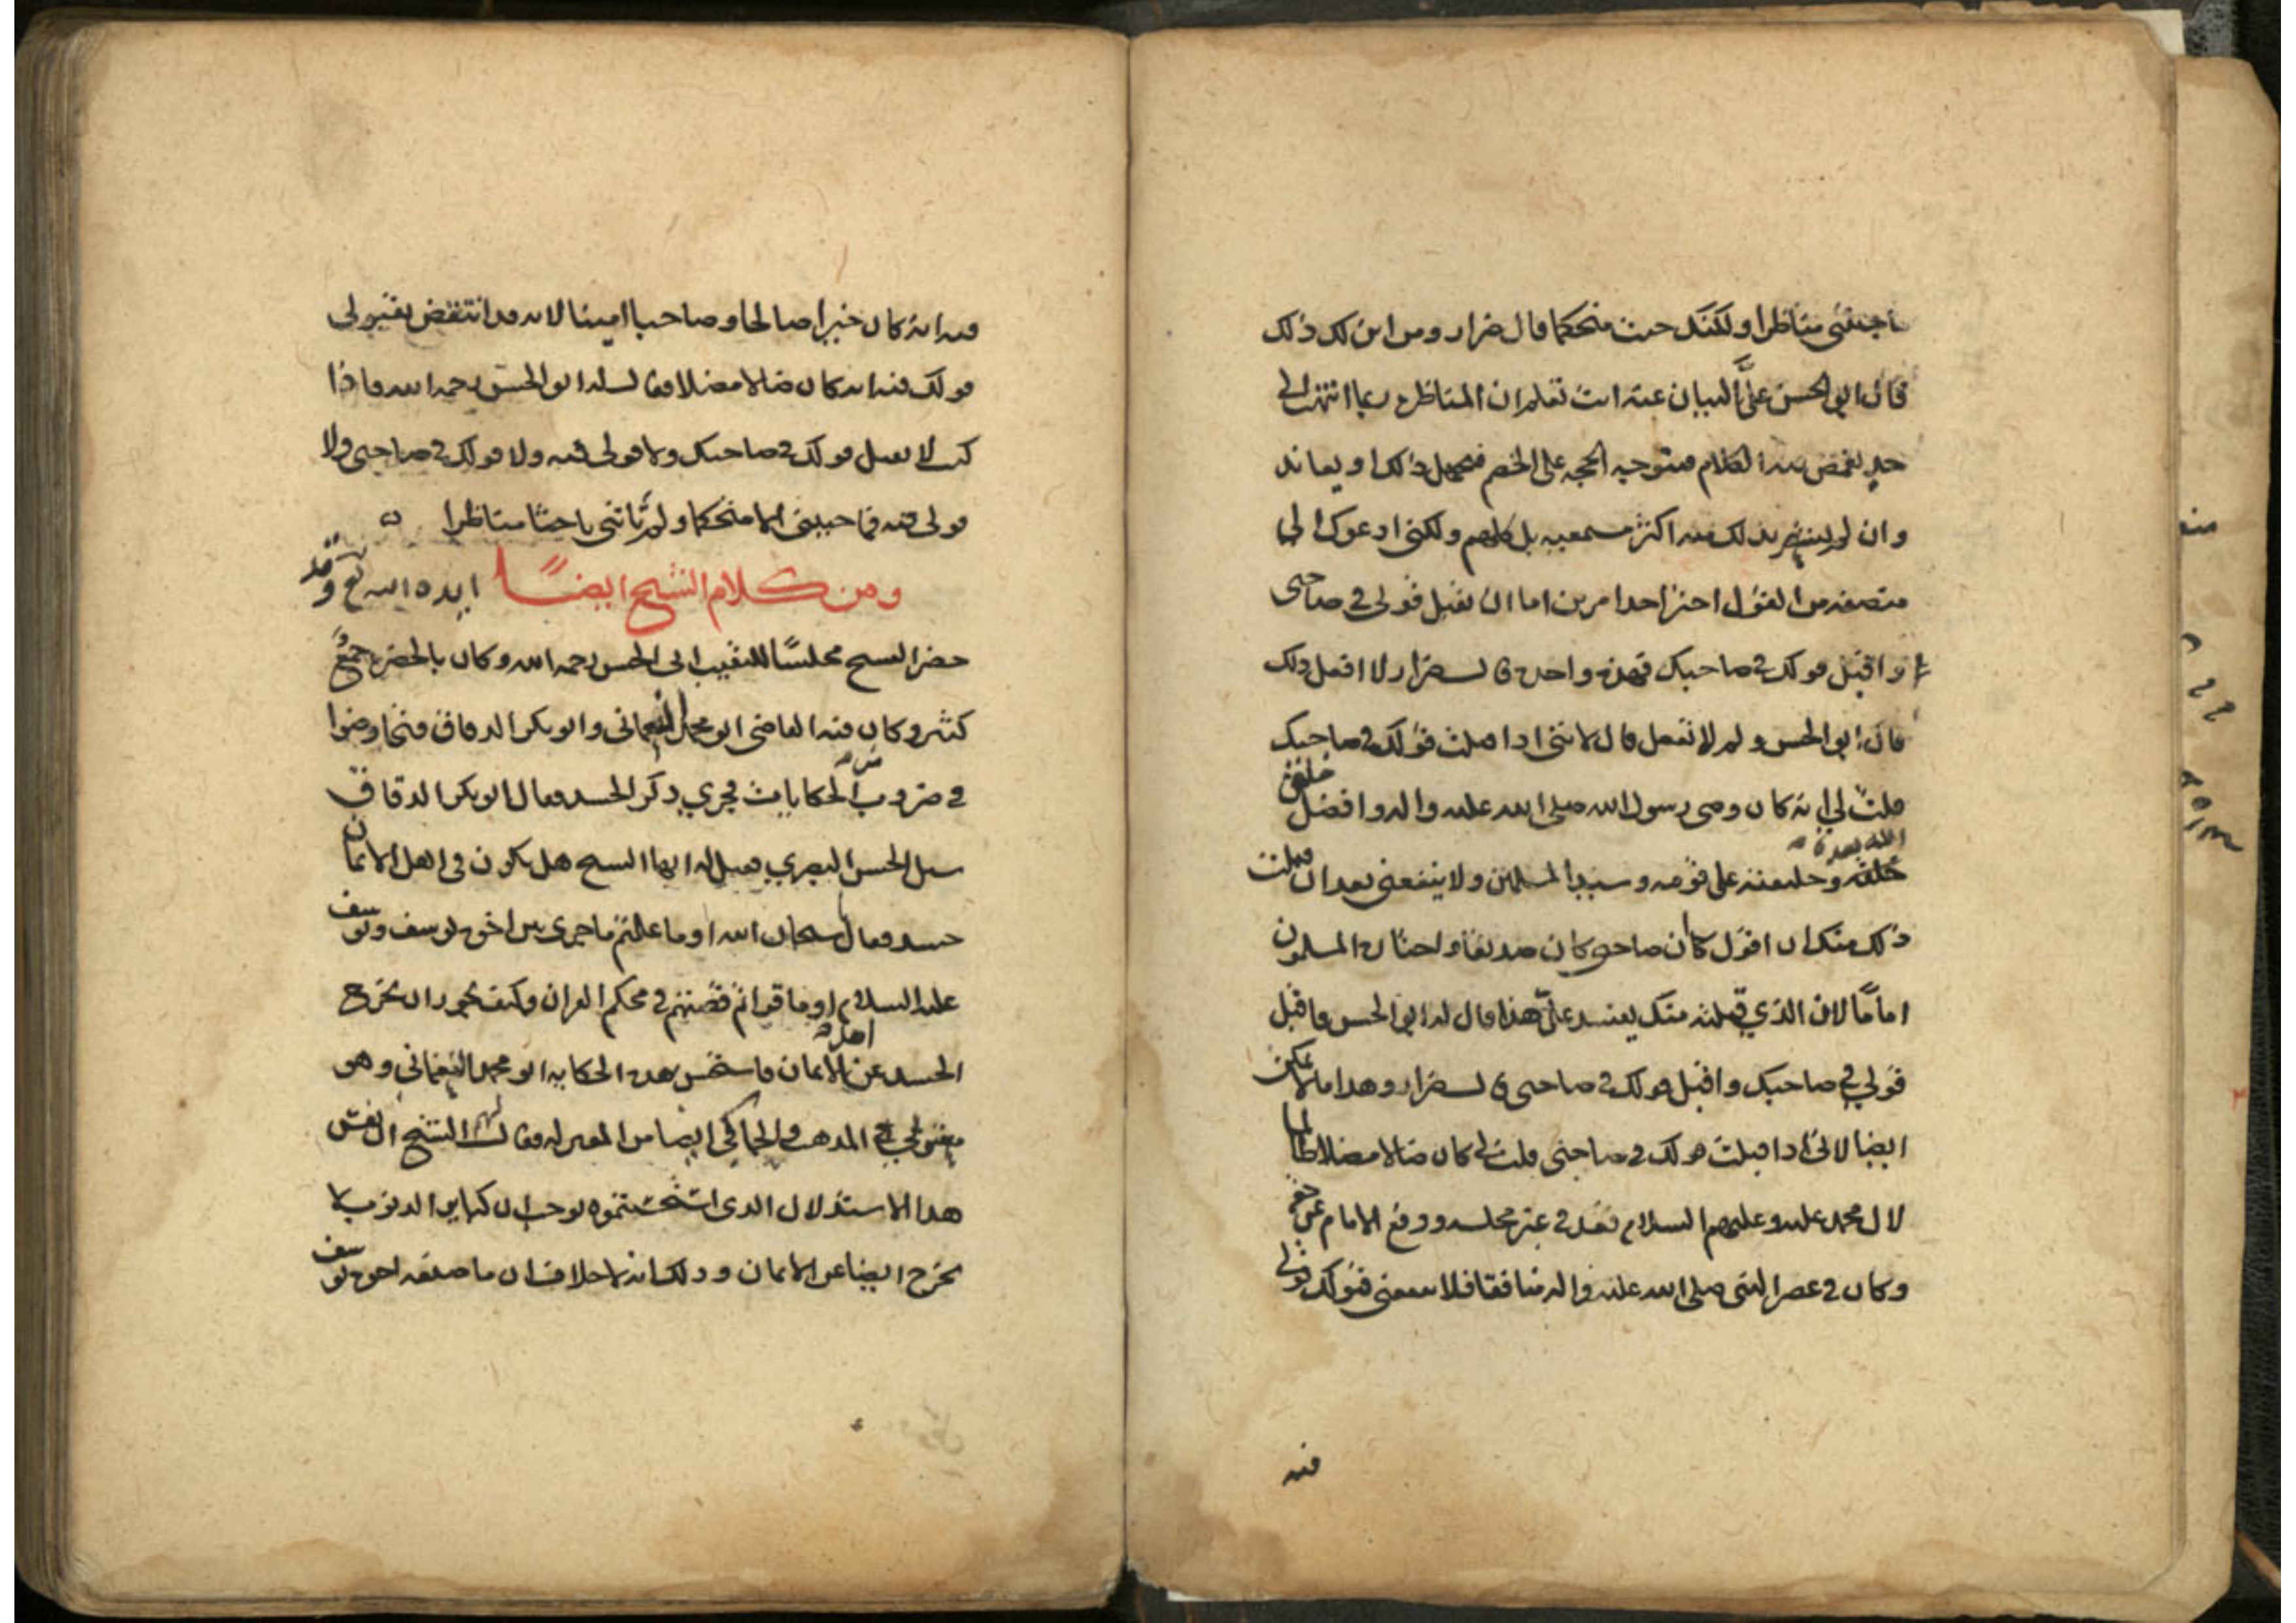 ما جئتني مناظرا ولكنك جئت متحكما قال ضرار ومن اين لك ذلك
قال ابو الحسن علىّ البيان عنه انت تعلم ان المناظرة ربما انتهت الى
حد يغمض فيه الكلام فتتوجه الحجة على الخصم فيجهل ذلك او يعاند
وان لم يشعر بذلك منه اكثر مستمعيه بل كلهم ولكنى ادعوك الى
منصفة من القول اختر احد امرين اما ان تقبل قولى في صاحبى
واقبل قولك في صاحبك فهذه واحدة قال ضرار لا افعل ذلك
قال ابو الحسن ولم لا تفعل قال لاننى اذا قبلت قولك في صاحبك
قلت لي انه كان وصى رسول الله صلى الله عليه واله وافضل من خلفه
وخليفته على قومه وسيد المسلمين ولا ينفعنى بعد ان قبلت
ذلك منك ان اقول كان صاحبى كان صديقا واختاره المسلمون
اماما لان الذي قبلته منك يفسد علىّ هذا قال له ابو الحسن فاقبل
قولي في صاحبك واقبل قولك في صاحبى قال ضرار وهذا ما لا يمكن
ايضا لانى اذا قبلت قولك في صاحبى قلت لى كان ضالا مضلا ظالما
لال محمد عليه وعليهم السلام قعد في غير مجلسه ودفع الامام عن حقه
وكان في عصر النبى صلى الله عليه واله منافقا فلا ينفعنى قبولك قولى
فيه
فيه انه كان خيرا صالحا وصاحبا امينا لانه قد انتقض بقبولى
قولك فيه انه كان ضالا مضلا فقال له ابو الحسن رحمه الله فاذا
كنت لا تقبل قولك في صاحبك ولا قولى فيه ولا قولك في صاحبى ولا
قولى فيه فما جئتنى الا متحكما ولم تاتنى باحثا مناظرا ه
ومن كلام الشيخ ايضًا ايده الله تع وقد
حضر الشيخ مجلسًا للنقيب ابى الحسن رحمه الله وكان بالحضرة جمعٌ
كثير وكان فيه القاضى ابو محمد العماني وابو بكر الدقاق فتخاوضوا
في ضروب من الحكايات فجري ذكر الحسد فقال ابو بكر الدقاق
سئل الحسن البصري فقيل له ايها الشيخ هل يكون فى اهل الايمان
حسد فقال سبحان الله اوما علمتم ما جرى بين اخوة يوسف ويوسف
عليه السلام اوما قراتم قصتهم في محكم القران وكيف يجوز ان يخرج
الحسد عن الايمان اهله فاستحسن هذه الحكاية ابو محمد العماني وهو
معتزلي المذهب والحاكي ايضا من المعتزلة فقال لهم الشيخ ان نفس
هذا الاستدلال الذى استحسنتموه يوجب ان كباير الذنوب لا
تخرج ايضا عن الايمان وذلك انه لا خلاف ان ما صنعه اخوة يوسف